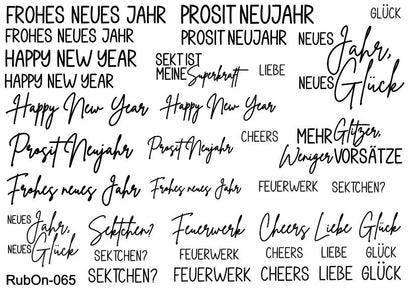 FROHES NEUES JAHR PROSIT NEUJAHR GLÜCK
FROHES NEUES JAHR PROSIT NEUJAHR NEUES Jahr,
HAPPY NEW YEAR SEKT IST NEUES Glück
HAPPY NEW YEAR MEINE Superkraft LIEBE
Happy New Year Happy New Year
Prosit Neujahr Prosit Neujahr CHEERS MEHR Glitzer,
Weniger VORSÄTZE
Frohes neues Jahr Frohes neues Jahr FEUERWERK SEKTCHEN?
NEUES Jahr, Sektchen? Feuerwerk Cheers Liebe Glück
NEUES Glück SEKTCHEN? FEUERWERK CHEERS LIEBE GLÜCK
RubOn-065 SEKTCHEN? FEUERWERK CHEERS LIEBE GLÜCK